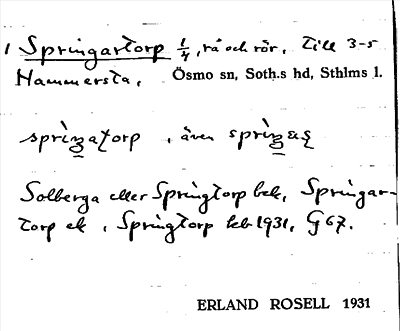 1 Springartorp 1/4, rå och rör, till 3-5
Hammersta, Ösmo sn, Soth.s hd, Sthlms l.
, även
Solberga eller Springtorp bek, Springar-
torp ek, Springtorp kb 1931, G 67.
ERLAND ROSELL 1931